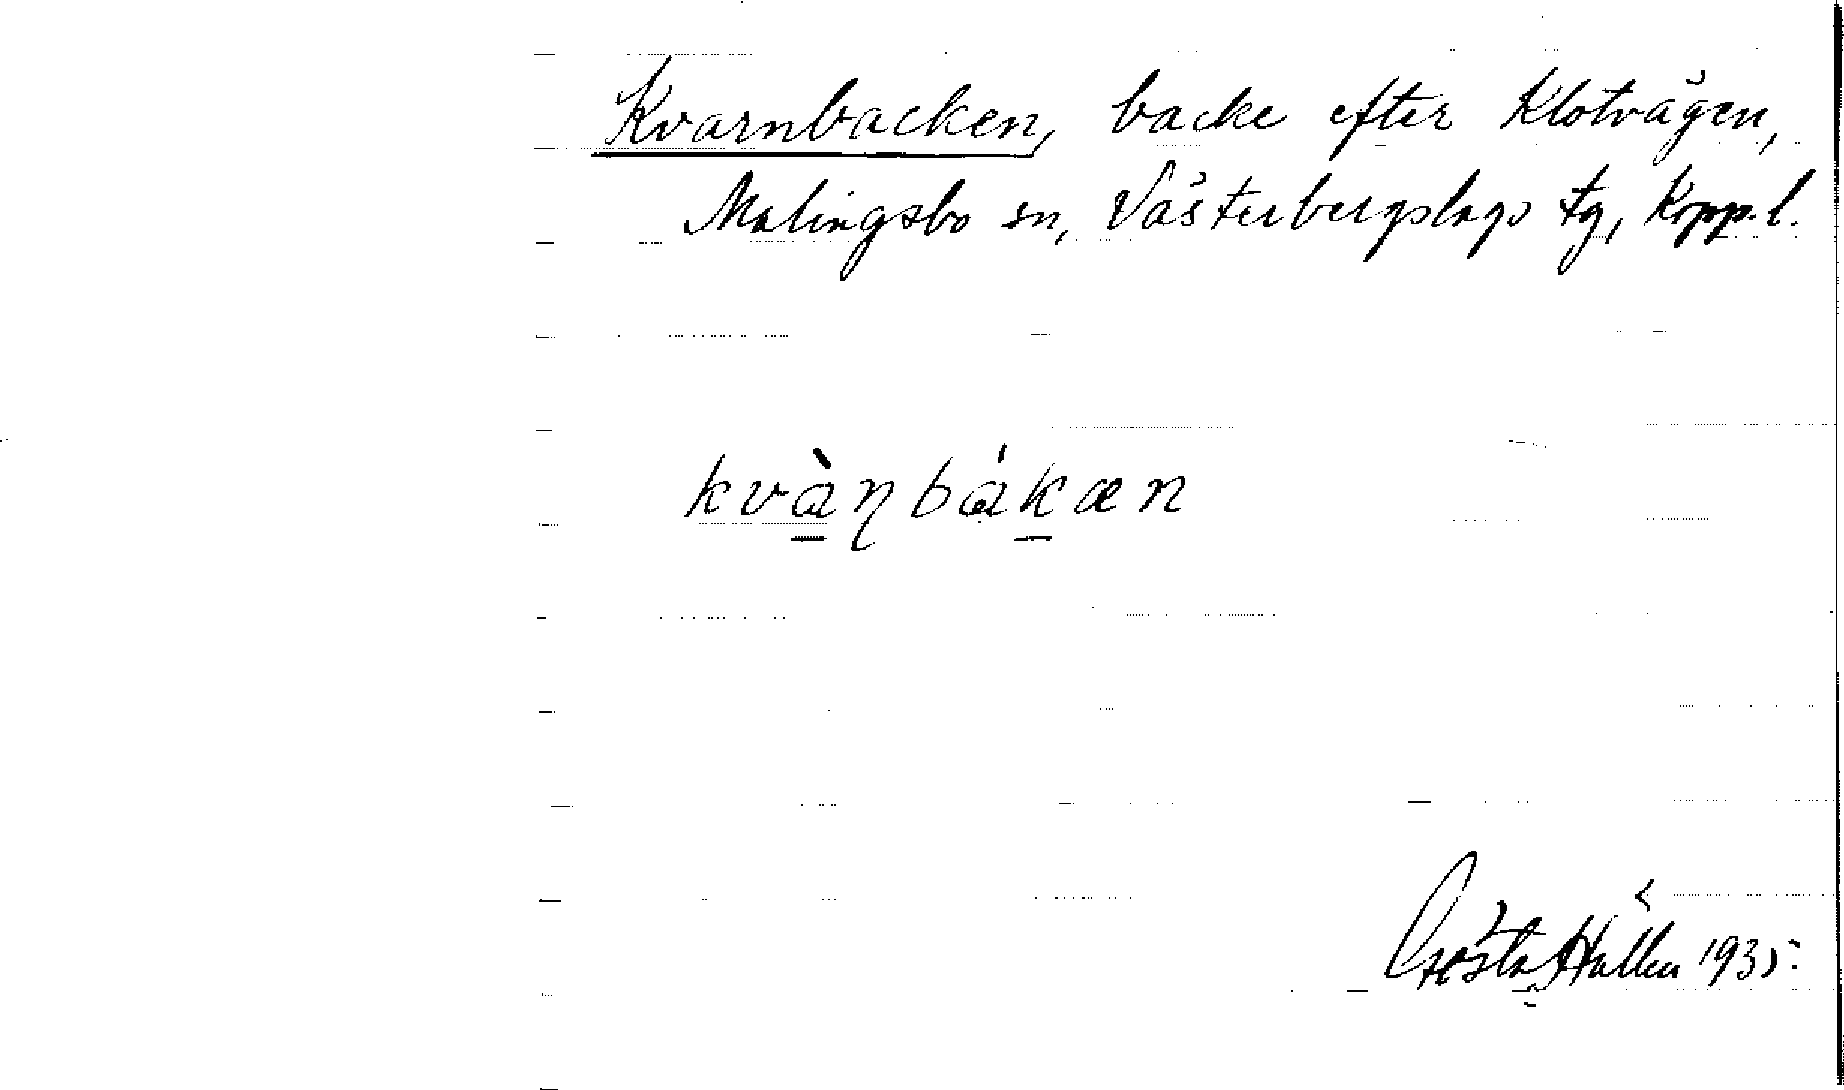 Kvarnbacken, backe efter Klotvägen,
Malingsbo sn, Västerbergslags tg, Kopp.l.
kvàɳbákæn
Gösta Hällen 1935.